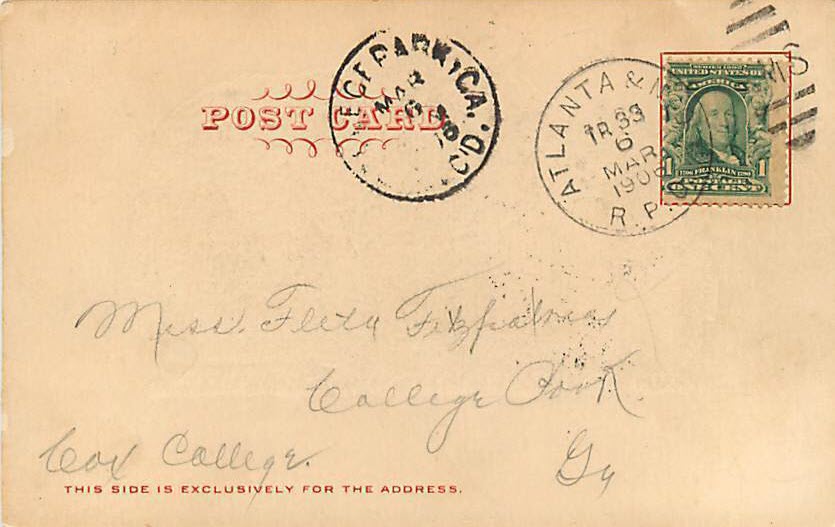 POST CARD
MAR
6
C'D.
ATLANTA &
TR 33
6
MAR
1906
R.P.O
SERIES 1902
UNITED STATES OF
AMERICA
1 1790 FRANKLIN 1790 1
POSTAGE
ONE CENT
Miss. Fleta
College Park
Cox College.
Ga
THIS SIDE IS EXCLUSIVELY FOR THE ADDRESS.